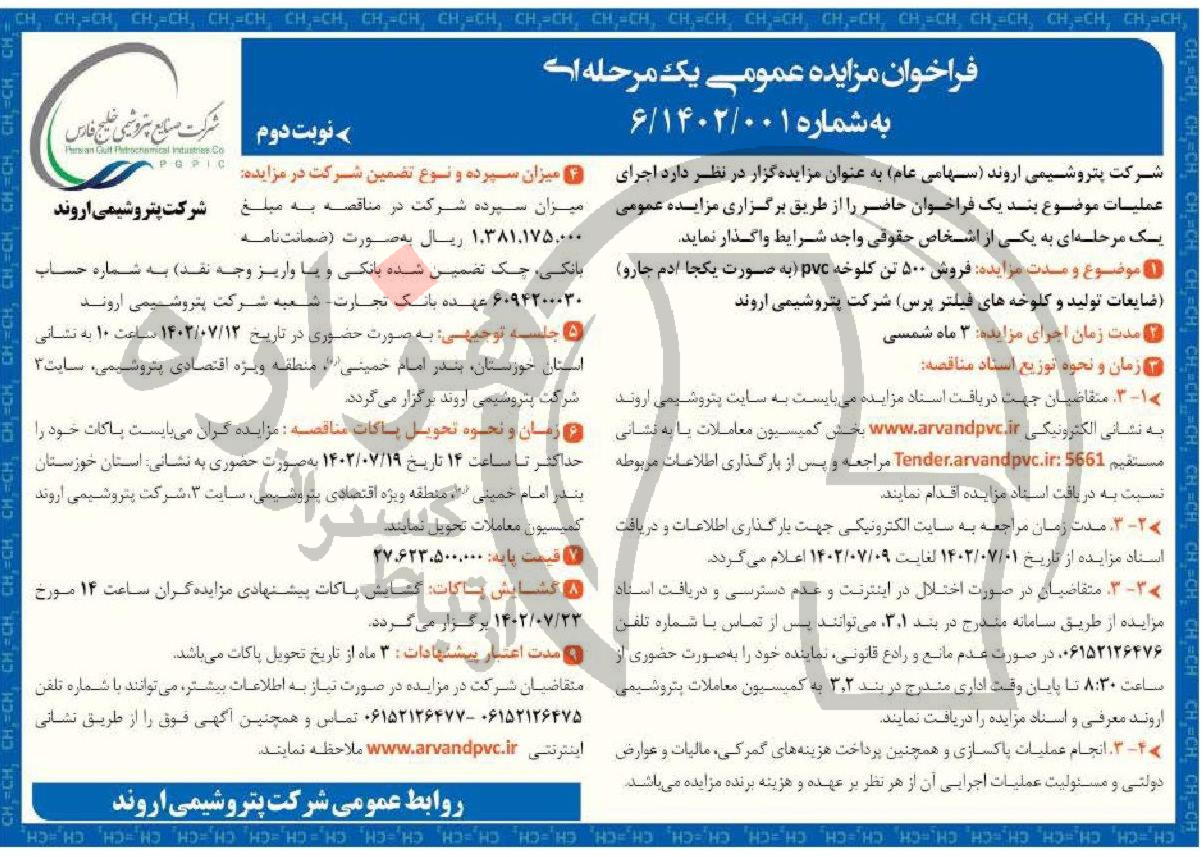 فراخوان مزایده عمومی یک مرحله ای
به شماره ۶/۱۴۰۲/۰۰۱
نوبت دوم
شرکت صنایع پتروشیمی خلیج فارس
Persian Gulf Petrochemical Industries Co
PGPIC
شرکت پتروشیمی اروند
شرکت پتروشیمی اروند (سهامی عام) به عنوان مزایده‌گزار در نظر دارد اجرای
عملیات موضوع بند یک فراخوان حاضر را از طریق برگزاری مزایده عمومی
یک مرحله‌ای به یکی از اشخاص حقوقی واجد شرایط واگذار نماید.
۱ موضوع و مدت مزایده: فروش ۵۰۰ تن کلوخه pvc (به صورت یکجا /دم جارو)
(ضایعات تولید و کلوخه های فیلتر پرس) شرکت پتروشیمی اروند
۲ مدت زمان اجرای مزایده: ۳ ماه شمسی
۳ زمان و نحوه توزیع اسناد مناقصه:
۱-۳. متقاضیان جهت دریافت اسناد مزایده می‌بایست به سایت پتروشیمی اروند
به نشانی الکترونیکی www.arvandpvc.ir بخش کمیسیون معاملات یا به نشانی
مستقیم Tender.arvandpvc.ir: 5661 مراجعه و پس از بارگذاری اطلاعات مربوطه
نسبت به دریافت اسناد مزایده اقدام نمایند.
۲-۳. مدت زمان مراجعه به سایت الکترونیکی جهت بارگذاری اطلاعات و دریافت
اسناد مزایده از تاریخ ۱۴۰۲/۰۷/۰۱ لغایت ۱۴۰۲/۰۷/۰۹ اعلام می‌گردد.
۳-۳. متقاضیان در صورت اختلال در اینترنت و عدم دسترسی و دریافت اسناد
مزایده از طریق سامانه مندرج در بند ۳,۱، می‌توانند پس از تماس با شماره تلفن
۰۶۱۵۲۱۲۶۴۷۶، در صورت عدم مانع و رادع قانونی، نماینده خود را به‌صورت حضوری از
ساعت ۸:۳۰ تا پایان وقت اداری مندرج در بند ۳,۲ به کمیسیون معاملات پتروشیمی
اروند معرفی و اسناد مزایده را دریافت نمایند.
۴-۳. انجام عملیات پاکسازی و همچنین پرداخت هزینه‌های گمرکی، مالیات و عوارض
دولتی و مسئولیت عملیات اجرایی آن از هر نظر بر عهده و هزینه برنده مزایده می‌باشد.
۴ میزان سپرده و نوع تضمین شرکت در مزایده:
میزان سپرده شرکت در مناقصه به مبلغ
۱،۳۸۱،۱۷۵،۰۰۰ ریال به‌صورت (ضمانت‌نامه
بانکی، چک تضمین شده بانکی و یا واریز وجه نقد) به شماره حساب
۶۰۹۴۲۰۰۳۰ عهده بانک تجارت- شعبه شرکت پتروشیمی اروند
۵ جلسه توجیهی: به صورت حضوری در تاریخ ۱۴۰۲/۰۷/۱۲ ساعت ۱۰ به نشانی
استان خوزستان، بندر امام خمینی(ره)، منطقه ویژه اقتصادی پتروشیمی، سایت۳
شرکت پتروشیمی اروند برگزار می‌گردد.
۶ زمان و نحوه تحویل پاکات مناقصه: مزایده گران می‌بایست پاکات خود را
حداکثر تا ساعت ۱۴ تاریخ ۱۴۰۲/۰۷/۱۹ به‌صورت حضوری به نشانی: استان خوزستان
بندر امام خمینی(ره)، منطقه ویژه اقتصادی پتروشیمی، سایت ۳، شرکت پتروشیمی اروند
کمیسیون معاملات تحویل نمایند.
۷ قیمت پایه: ۲۷،۶۲۳،۵۰۰،۰۰۰
۸ گشایش پاکات: گشایش پاکات پیشنهادی مزایده‌گران ساعت ۱۴ مورخ
۱۴۰۲/۰۷/۲۳ برگزار می‌گردد.
۹ مدت اعتبار پیشنهادات: ۳ ماه از تاریخ تحویل پاکات می‌باشد.
متقاضیان شرکت در مزایده در صورت نیاز به اطلاعات بیشتر، می‌توانند با شماره تلفن
۰۶۱۵۲۱۲۶۴۷۵ -۰۶۱۵۲۱۲۶۴۷۷ تماس و همچنین آگهی فوق را از طریق نشانی
اینترنتی www.arvandpvc.ir ملاحظه نمایند.
روابط عمومی شرکت پتروشیمی اروند